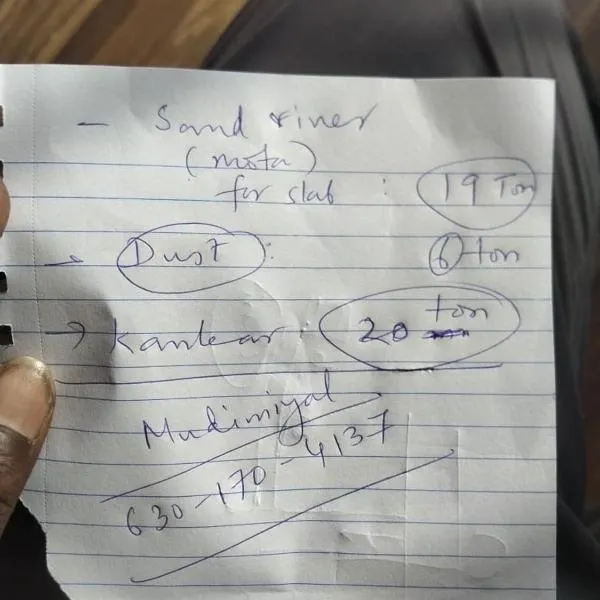 - Sand river
(mota)
for slab : 19 Ton
→ Dust : 6 ton
→ Kankar : 20 ton
Mudimiyal
630-170-4137